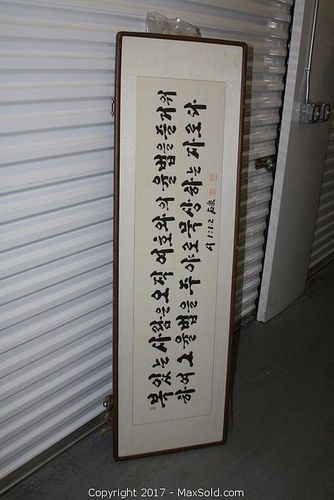 복있는 사람은 오직 여호와의 율법을 즐거워
하여 그 율법을 주야로 묵상 하는 자로다
시 1:1.2
Copyright 2017 - MaxSold.com